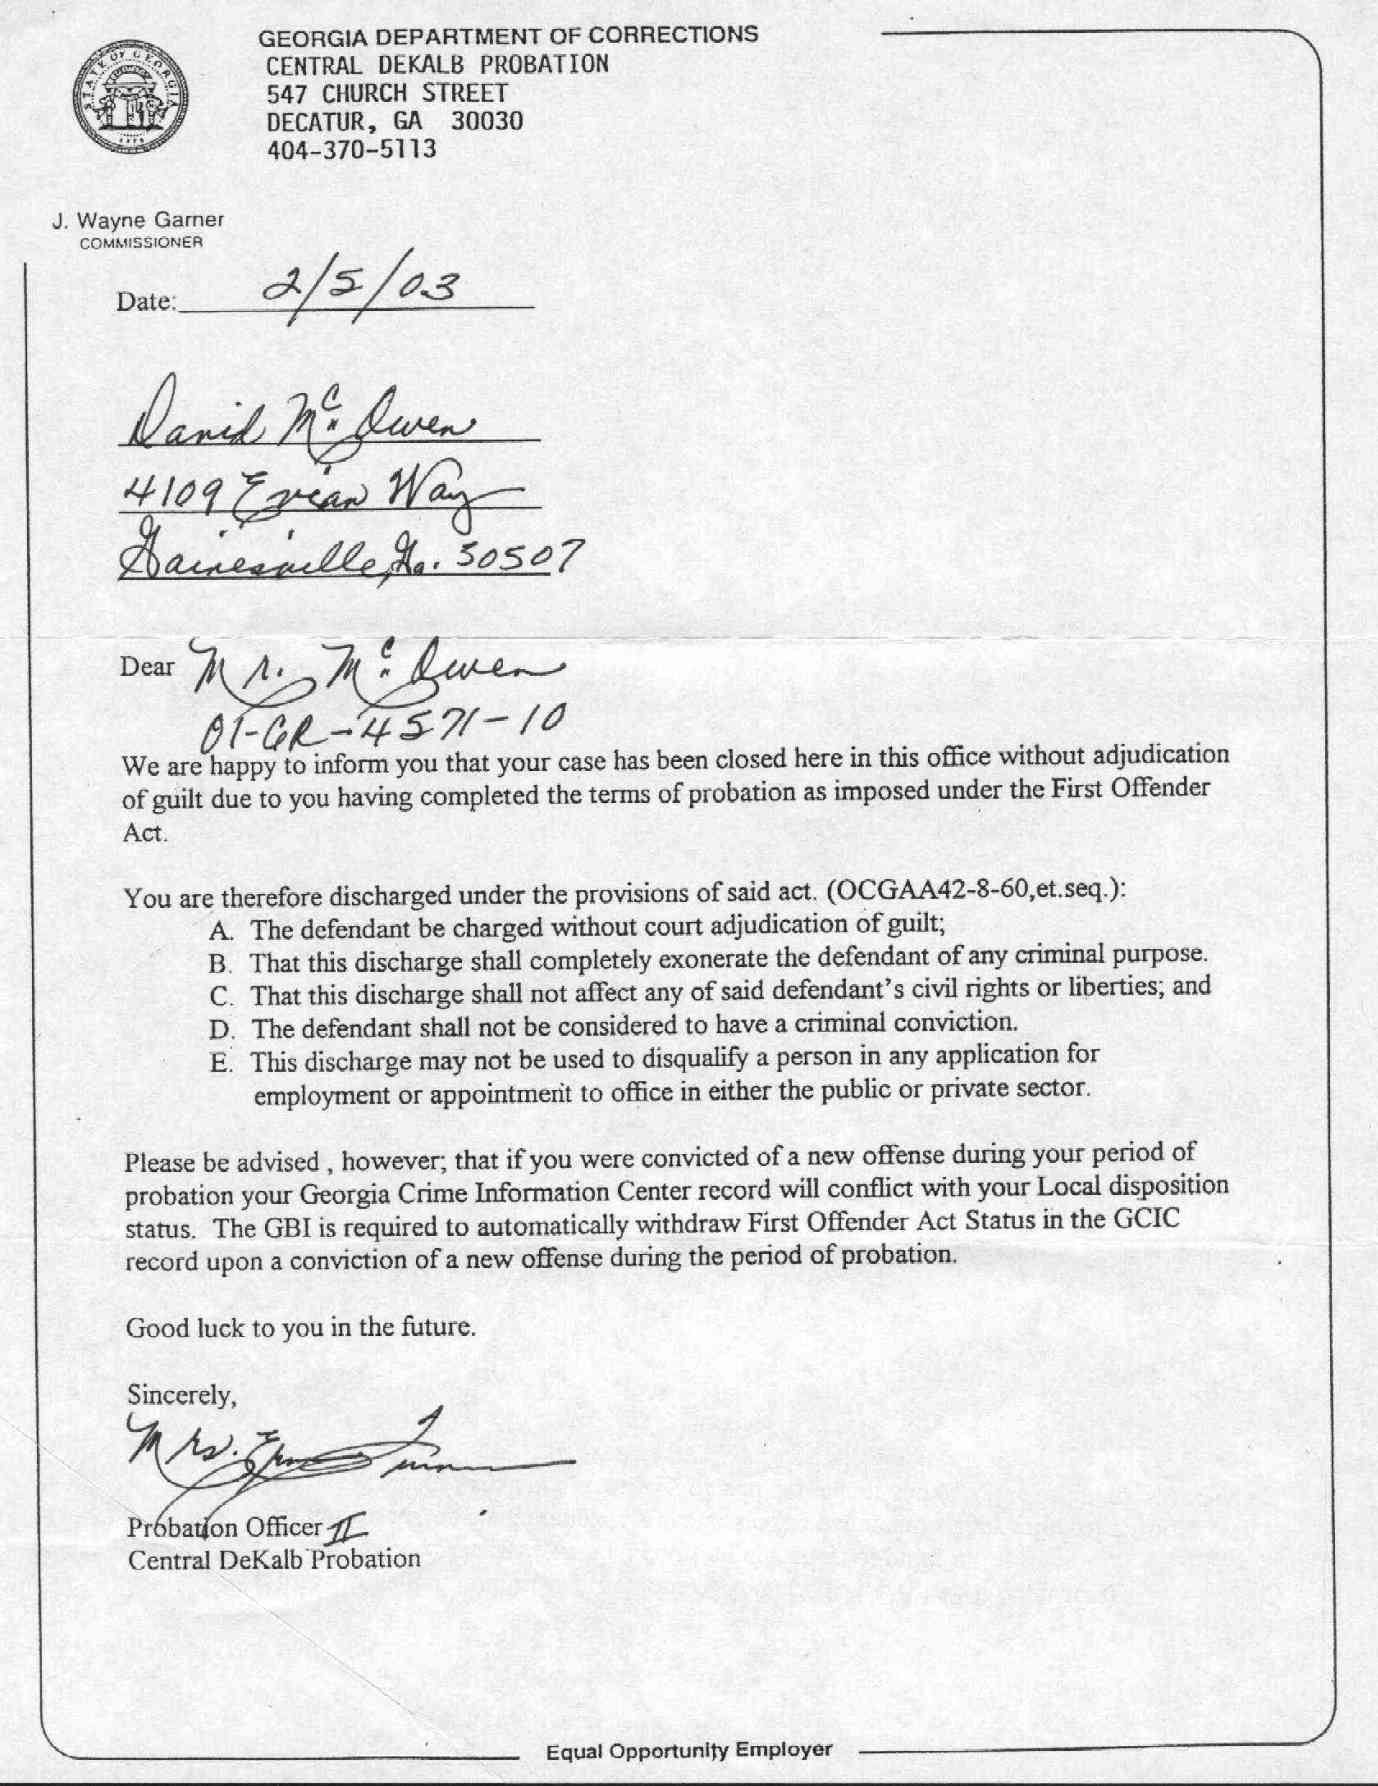 GEORGIA DEPARTMENT OF CORRECTIONS
CENTRAL DEKALB PROBATION
547 CHURCH STREET
DECATUR, GA 30030
404-370-5113
STATE OF GEORGIA
1776
J. Wayne Garner
COMMISSIONER
Date: 2/5/03
David McOwen
4109 Evian Way
Gainesville, Ga. 30507
Dear Mr. McOwen
01-CR-4571-10
We are happy to inform you that your case has been closed here in this office without adjudication
of guilt due to you having completed the terms of probation as imposed under the First Offender
Act.
You are therefore discharged under the provisions of said act. (OCGAA42-8-60,et.seq.):
A. The defendant be charged without court adjudication of guilt;
B. That this discharge shall completely exonerate the defendant of any criminal purpose.
C. That this discharge shall not affect any of said defendant's civil rights or liberties; and
D. The defendant shall not be considered to have a criminal conviction.
E. This discharge may not be used to disqualify a person in any application for
employment or appointment to office in either the public or private sector.
Please be advised , however; that if you were convicted of a new offense during your period of
probation your Georgia Crime Information Center record will conflict with your Local disposition
status. The GBI is required to automatically withdraw First Offender Act Status in the GCIC
record upon a conviction of a new offense during the period of probation.
Good luck to you in the future.
Sincerely,
Mrs.
Probation Officer II
Central DeKalb Probation
Equal Opportunity Employer